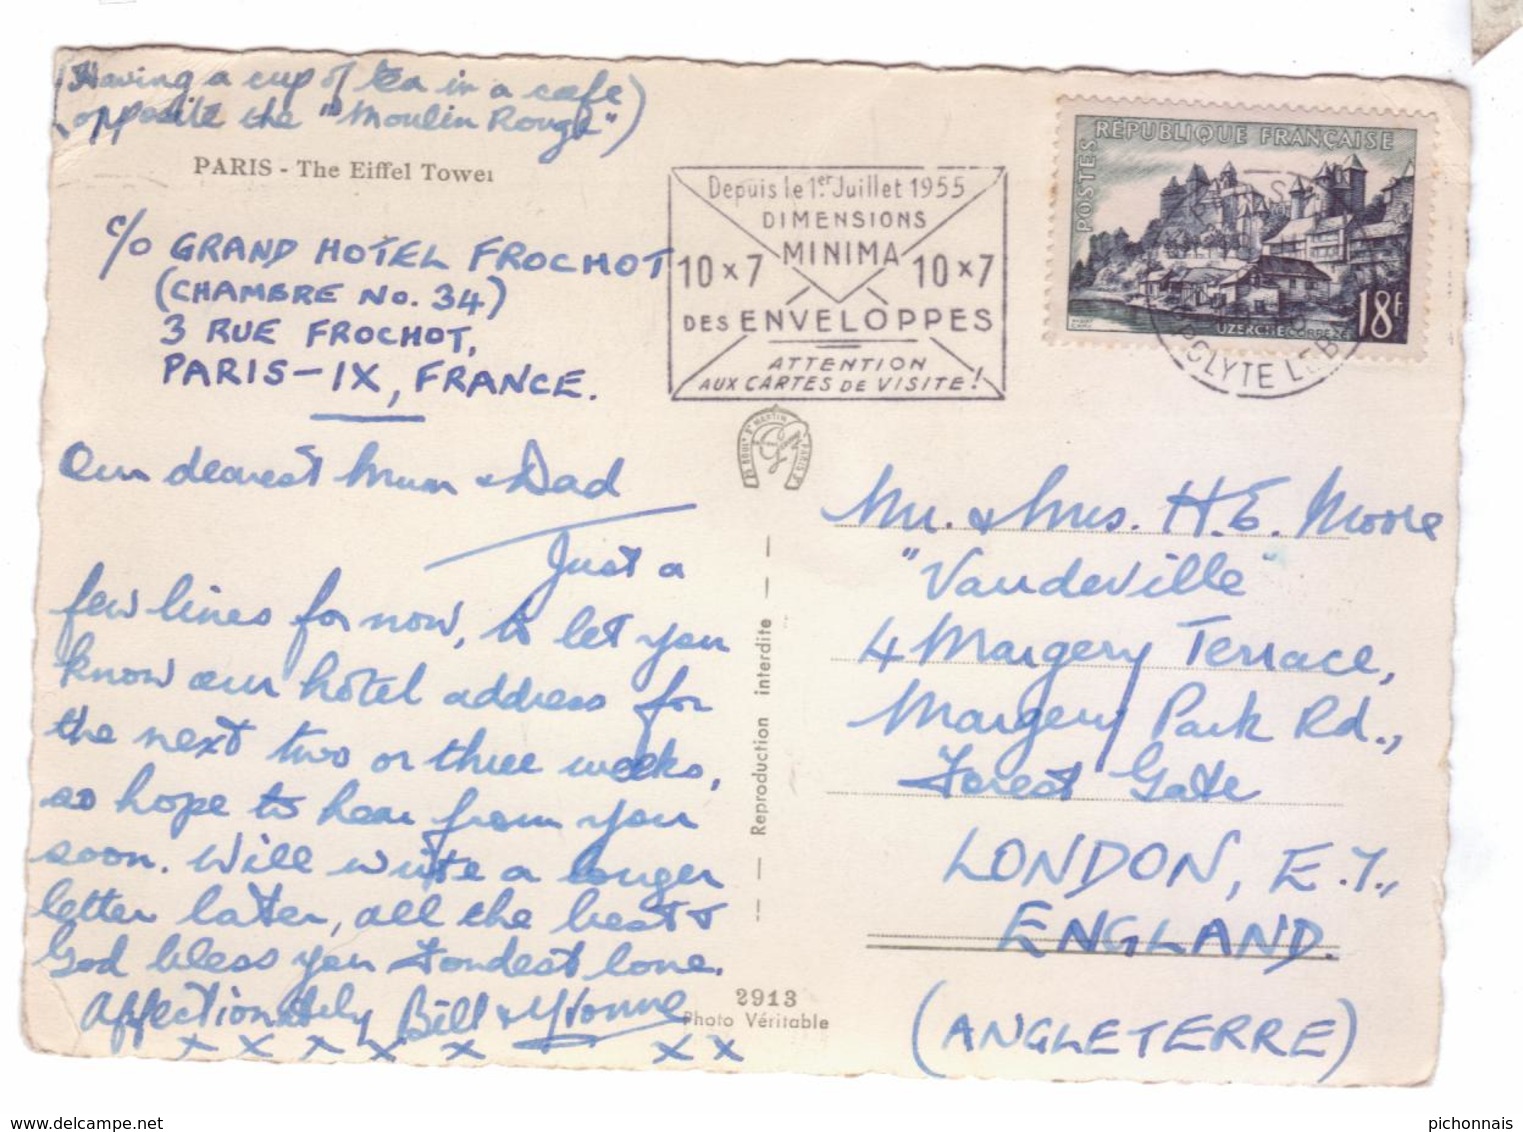 (Having a cup of tea in a cafe
opposite the "Moulin Rouge")
PARIS - The Eiffel Tower
c/o GRAND HOTEL FROCHOT
(CHAMBRE No. 34)
3 RUE FROCHOT,
PARIS-IX, FRANCE.
Our dearest Mum & Dad
Just a
few lines for now, to let you
know our hotel address for
the next two or three weeks,
so hope to hear from you
soon. Will write a longer
letter later, all the best &
God bless you Fondest love.
Affectionately Bill & Yvonne
x x x x x x x
Depuis le 1er Juillet 1955
DIMENSIONS
MINIMA
10 x 7 10 x 7
DES ENVELOPPES
ATTENTION
AUX CARTES DE VISITE!
RÉPUBLIQUE FRANÇAISE
POSTES
UZERCHE CORRÈZE
18F
Reproduction interdite
2913
Photo Véritable
Mr. & Mrs. H. E. Moore
"Vaudeville"
4 Margery Terrace,
Margery Park Rd.,
Forest Gate
LONDON, E.7.,
ENGLAND.
(ANGLETERRE)
www.delcampe.net
pichonnais